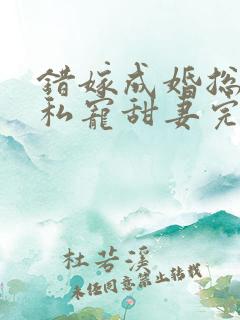 錯嫁成婚總
私寵甜妻完
杜若溪
未经同意禁止转载